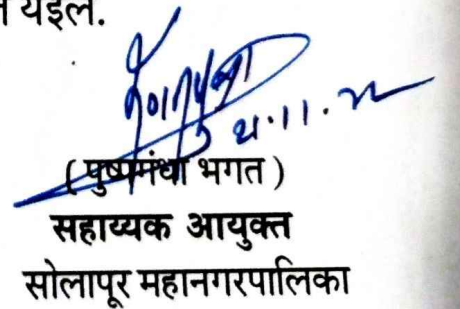 येईल.
( पुष्पगंधा भगत )
सहाय्यक आयुक्त
सोलापूर महानगरपालिका